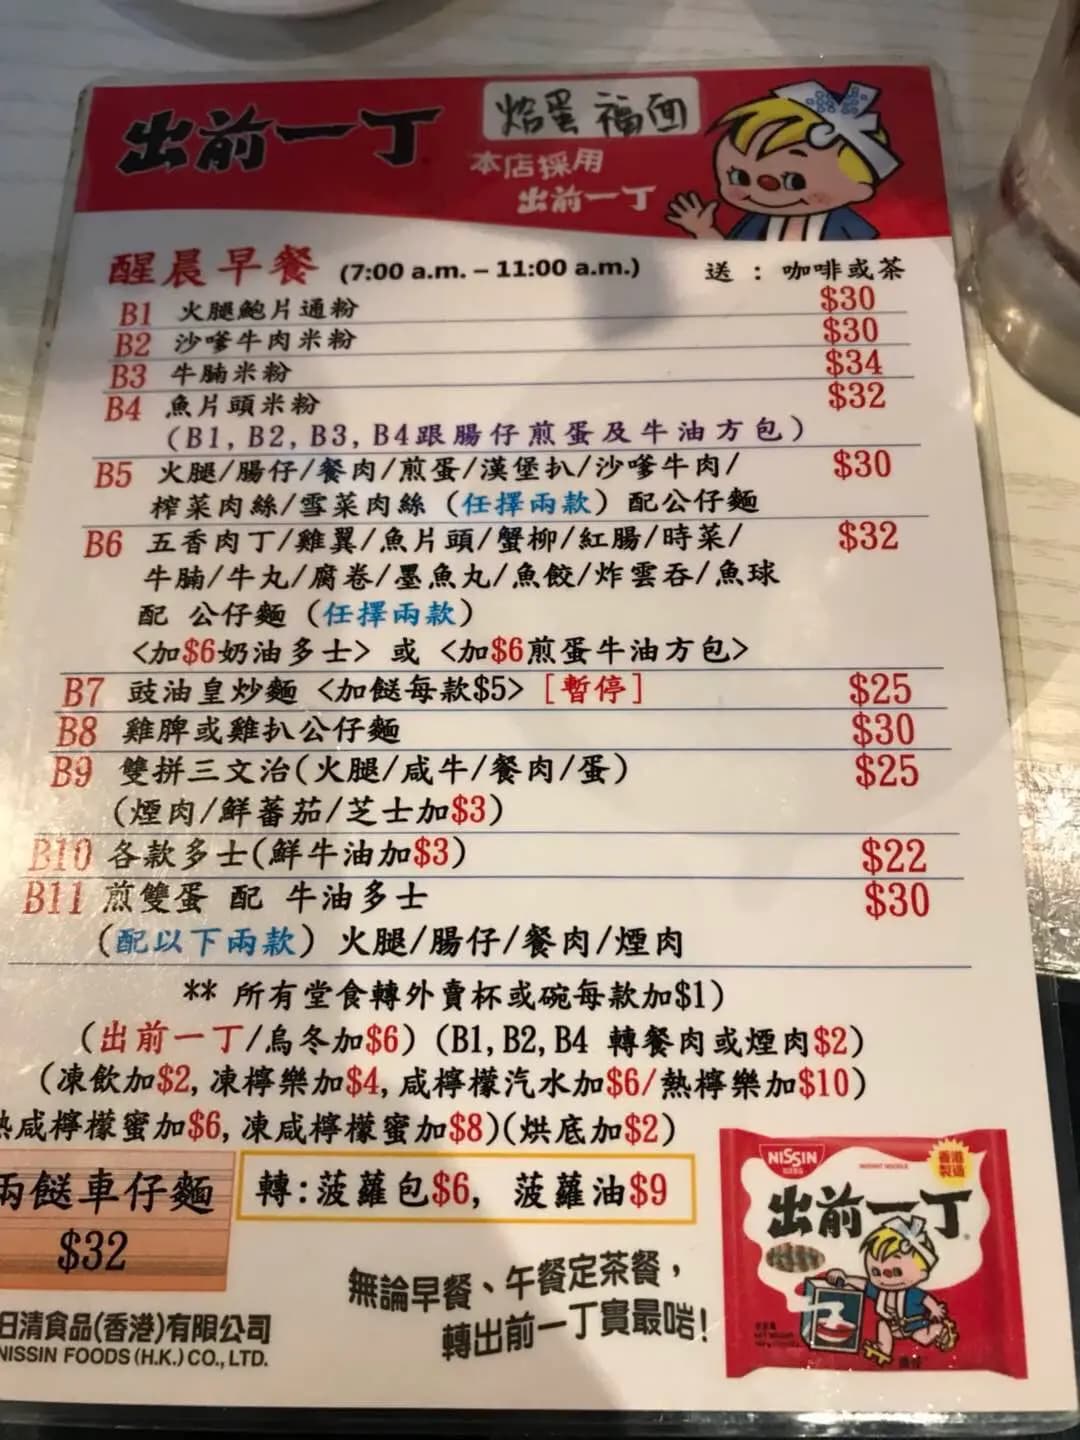 出前一丁
焓蛋 福面
本店採用
出前一丁
醒晨早餐 (7:00 a.m. – 11:00 a.m.) 送 : 咖啡或茶
B1 火腿鮑片通粉 $30
B2 沙嗲牛肉米粉 $30
B3 牛腩米粉 $34
B4 魚片頭米粉 $32
(B1, B2, B3, B4跟腸仔煎蛋及牛油方包)
B5 火腿/腸仔/餐肉/煎蛋/漢堡扒/沙嗲牛肉/ $30
榨菜肉絲/雪菜肉絲 (任擇兩款) 配公仔麵
B6 五香肉丁/雞翼/魚片頭/蟹柳/紅腸/時菜/ $32
牛腩/牛丸/腐卷/墨魚丸/魚餃/炸雲吞/魚球
配 公仔麵 (任擇兩款)
<加$6奶油多士> 或 <加$6煎蛋牛油方包>
B7 豉油皇炒麵 <加餸每款$5> [暫停] $25
B8 雞脾或雞扒公仔麵 $30
B9 雙拼三文治(火腿/咸牛/餐肉/蛋) $25
(煙肉/鮮蕃茄/芝士加$3)
B10 各款多士(鮮牛油加$3) $22
B11 煎雙蛋 配 牛油多士 $30
(配以下兩款) 火腿/腸仔/餐肉/煙肉
** 所有堂食轉外賣杯或碗每款加$1)
(出前一丁/烏冬加$6) (B1, B2, B4 轉餐肉或煙肉$2)
(凍飲加$2, 凍檸樂加$4, 咸檸檬汽水加$6/熱檸樂加$10)
熱咸檸檬蜜加$6, 凍咸檸檬蜜加$8)(烘底加$2)
兩餸車仔麵
$32
轉:菠蘿包$6, 菠蘿油$9
無論早餐、午餐定茶餐，
轉出前一丁實最啱!
日清食品(香港)有限公司
NISSIN FOODS (H.K.) CO., LTD.
NISSIN
香港製造
出前一丁